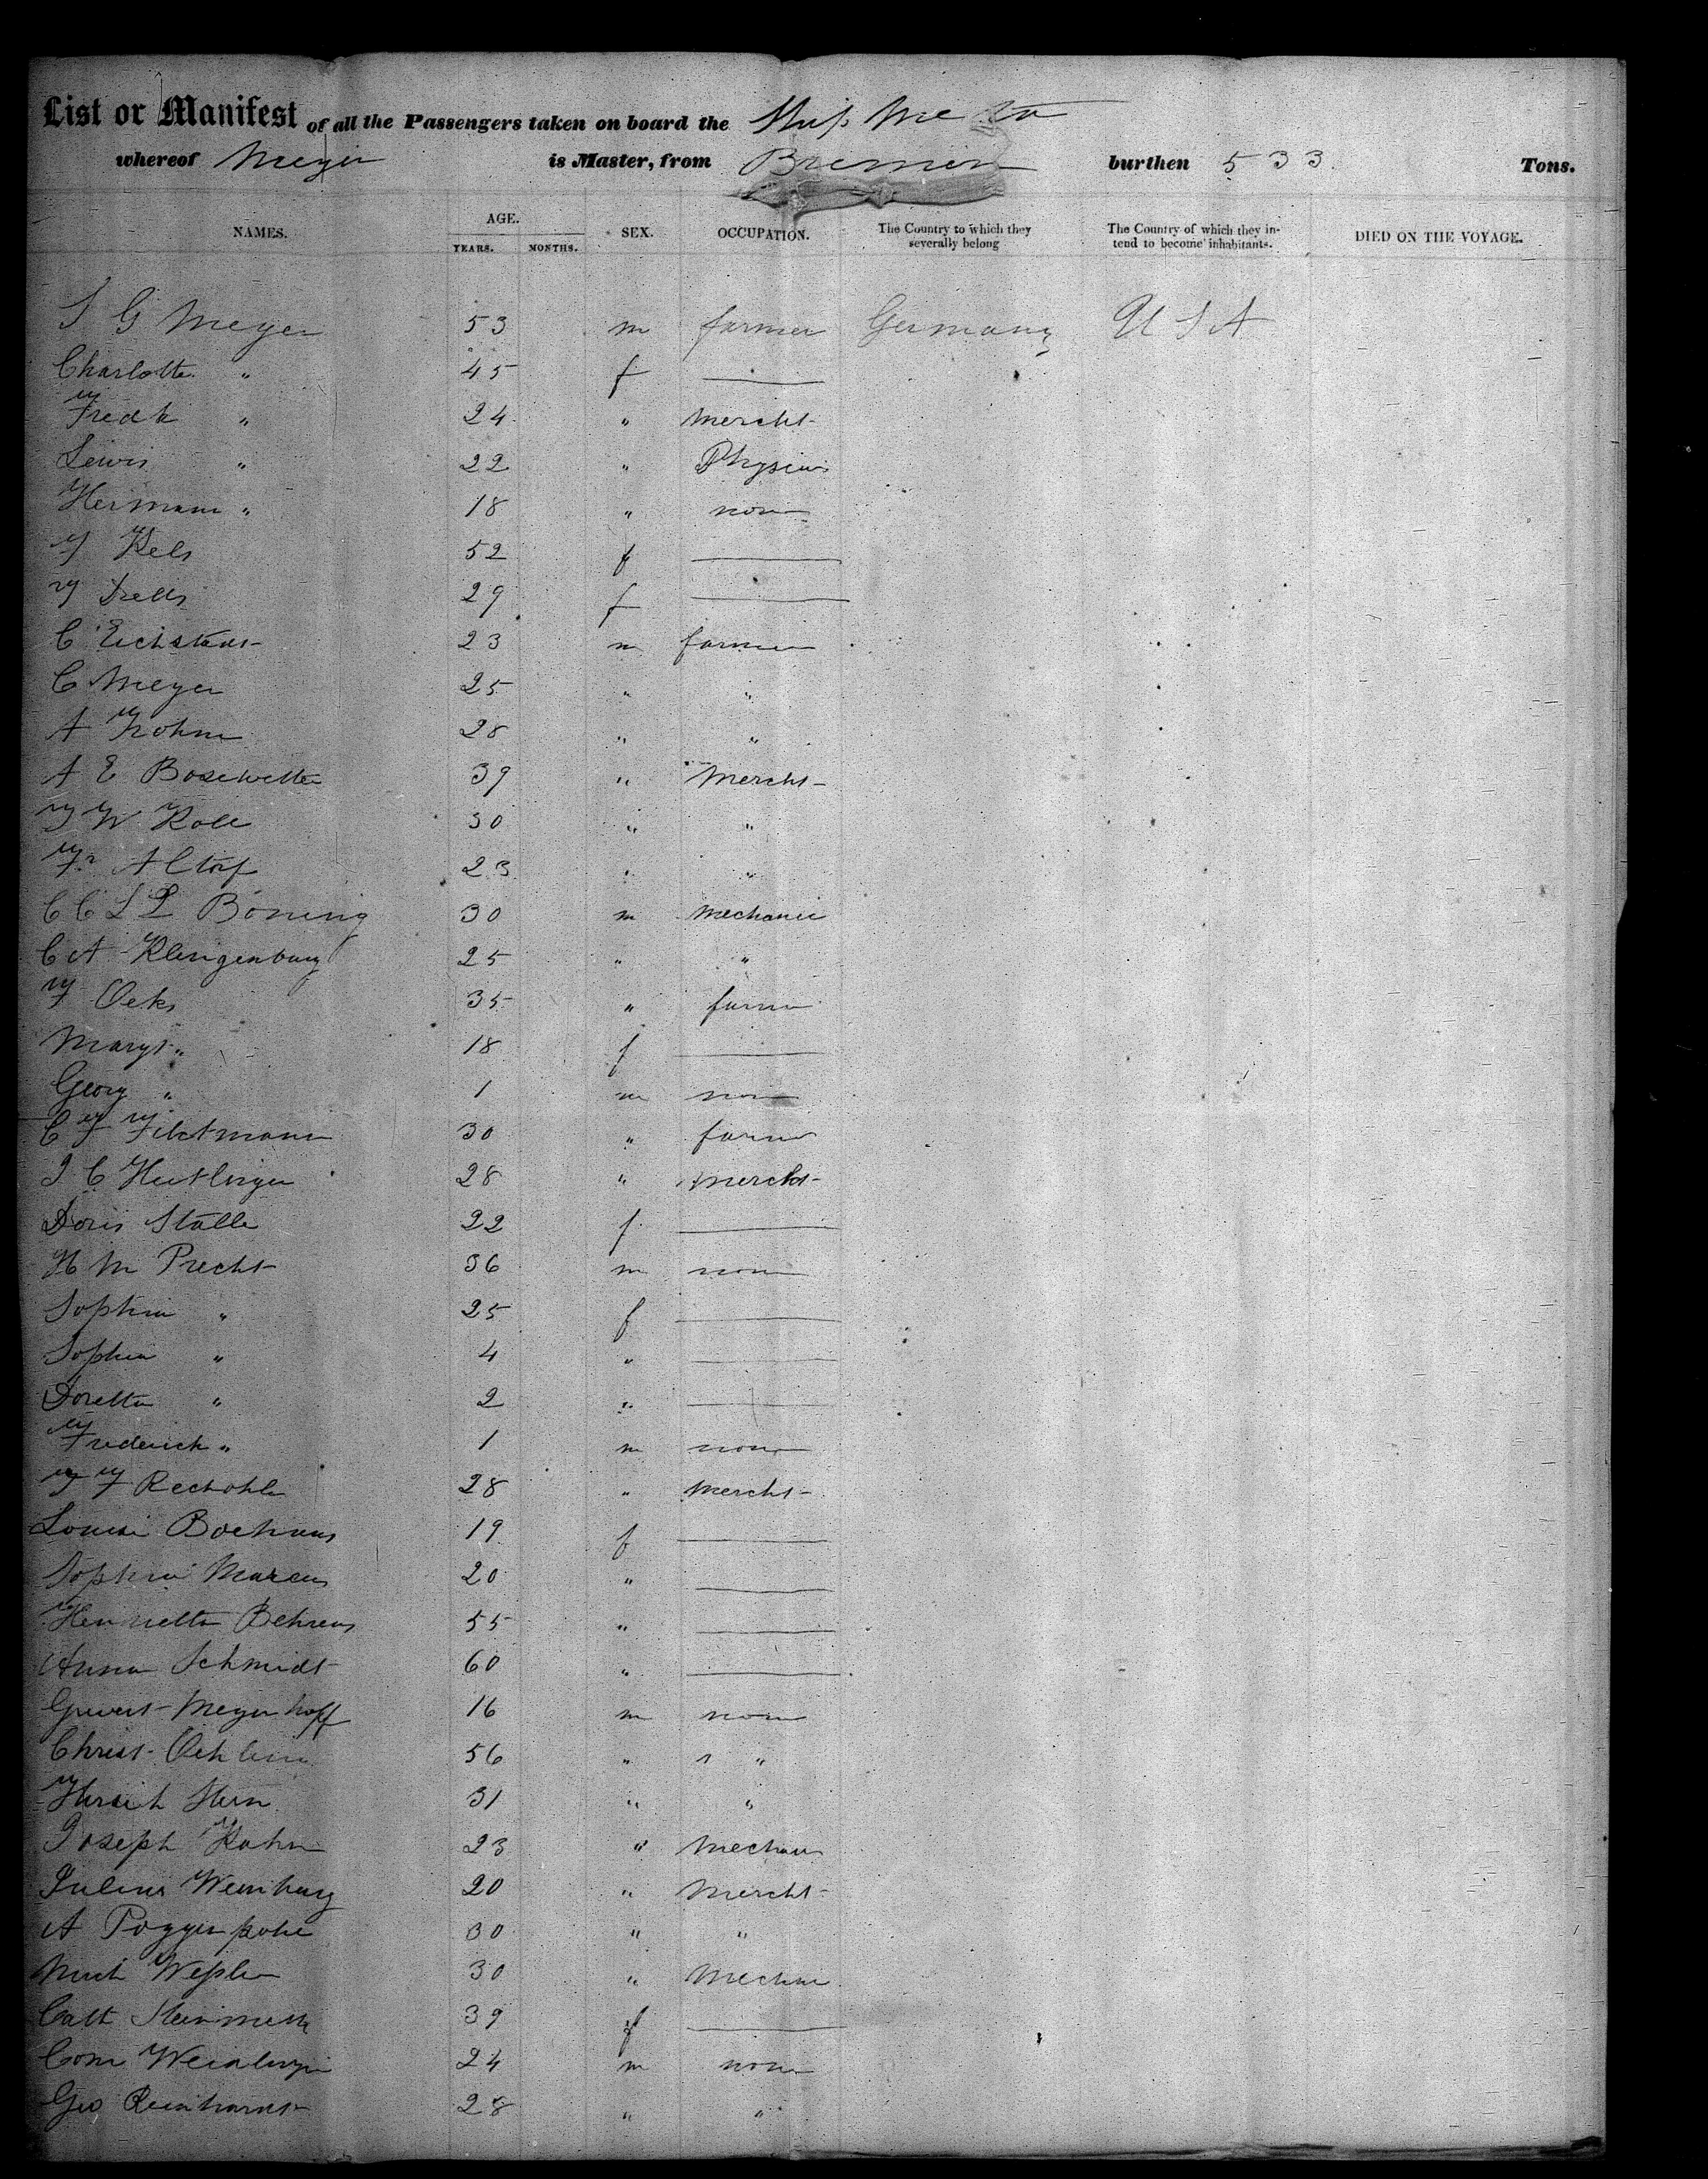 List or Manifest of all the Passengers taken on board the Ship Meta
whereof Meyer is Master, from Bremen burthen 533 Tons.
NAMES. AGE. YEARS. MONTHS. SEX. OCCUPATION. The Country to which they severally belong The Country of which they intend to become inhabitants. DIED ON THE VOYAGE.
J G Meyer 53 m farmer Germany U S A
Charlotte " 45 f —
Fredk " 24 " Mercht
Lewis " 22 " Physician
Hermann " 18 " none
F Kels 52 f —
F 29 f —
C Eichstadt 23 m farmer
C Meyer 25 " "
A Frohm 28 " "
A E 39 " Mercht
F W Kole 30 " "
Fr Altorf 23 " "
C C L L Böning 30 m Mechanic
C A Klingenburg 25 " "
F Oeks 35 " farmer
Maryt " 18 f —
Georg " 1 m none
C F Fiktmann 30 " farmer
J C 28 " Mercht
Doris Stalle 22 f —
H M Precht 36 m none
Sophia " 25 f —
Sophia " 4 " —
Doretta " 2 " —
Frederick " 1 m none
F F 28 " Mercht
Louise 19 f —
Sophia Marcus 20 " —
Henrietta Behrens 55 " —
Anna Schmidt 60 " —
Meyerhoff 16 m none
Christ 56 " "
Hirsch Stern 31 " "
Joseph Kahn 23 " Mechan
Julius Weinburg 20 " Mercht
A Poggenpohl 30 " "
30 " Mechan
Cath Steinmetz 39 f —
24 m none
Geo Reinhardt 28 " "